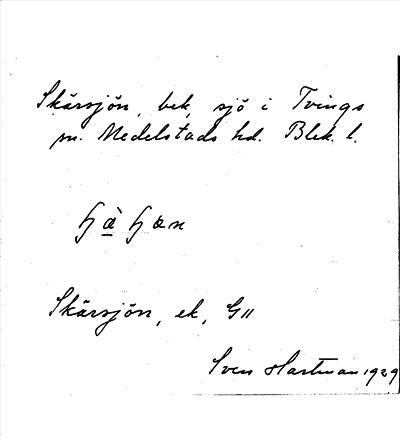 Skärsjön, bek, sjö i Tvings
sn. Medelstads hd. Blek. l.
Skärsjön, ek, G11
Sven Hartman 1929